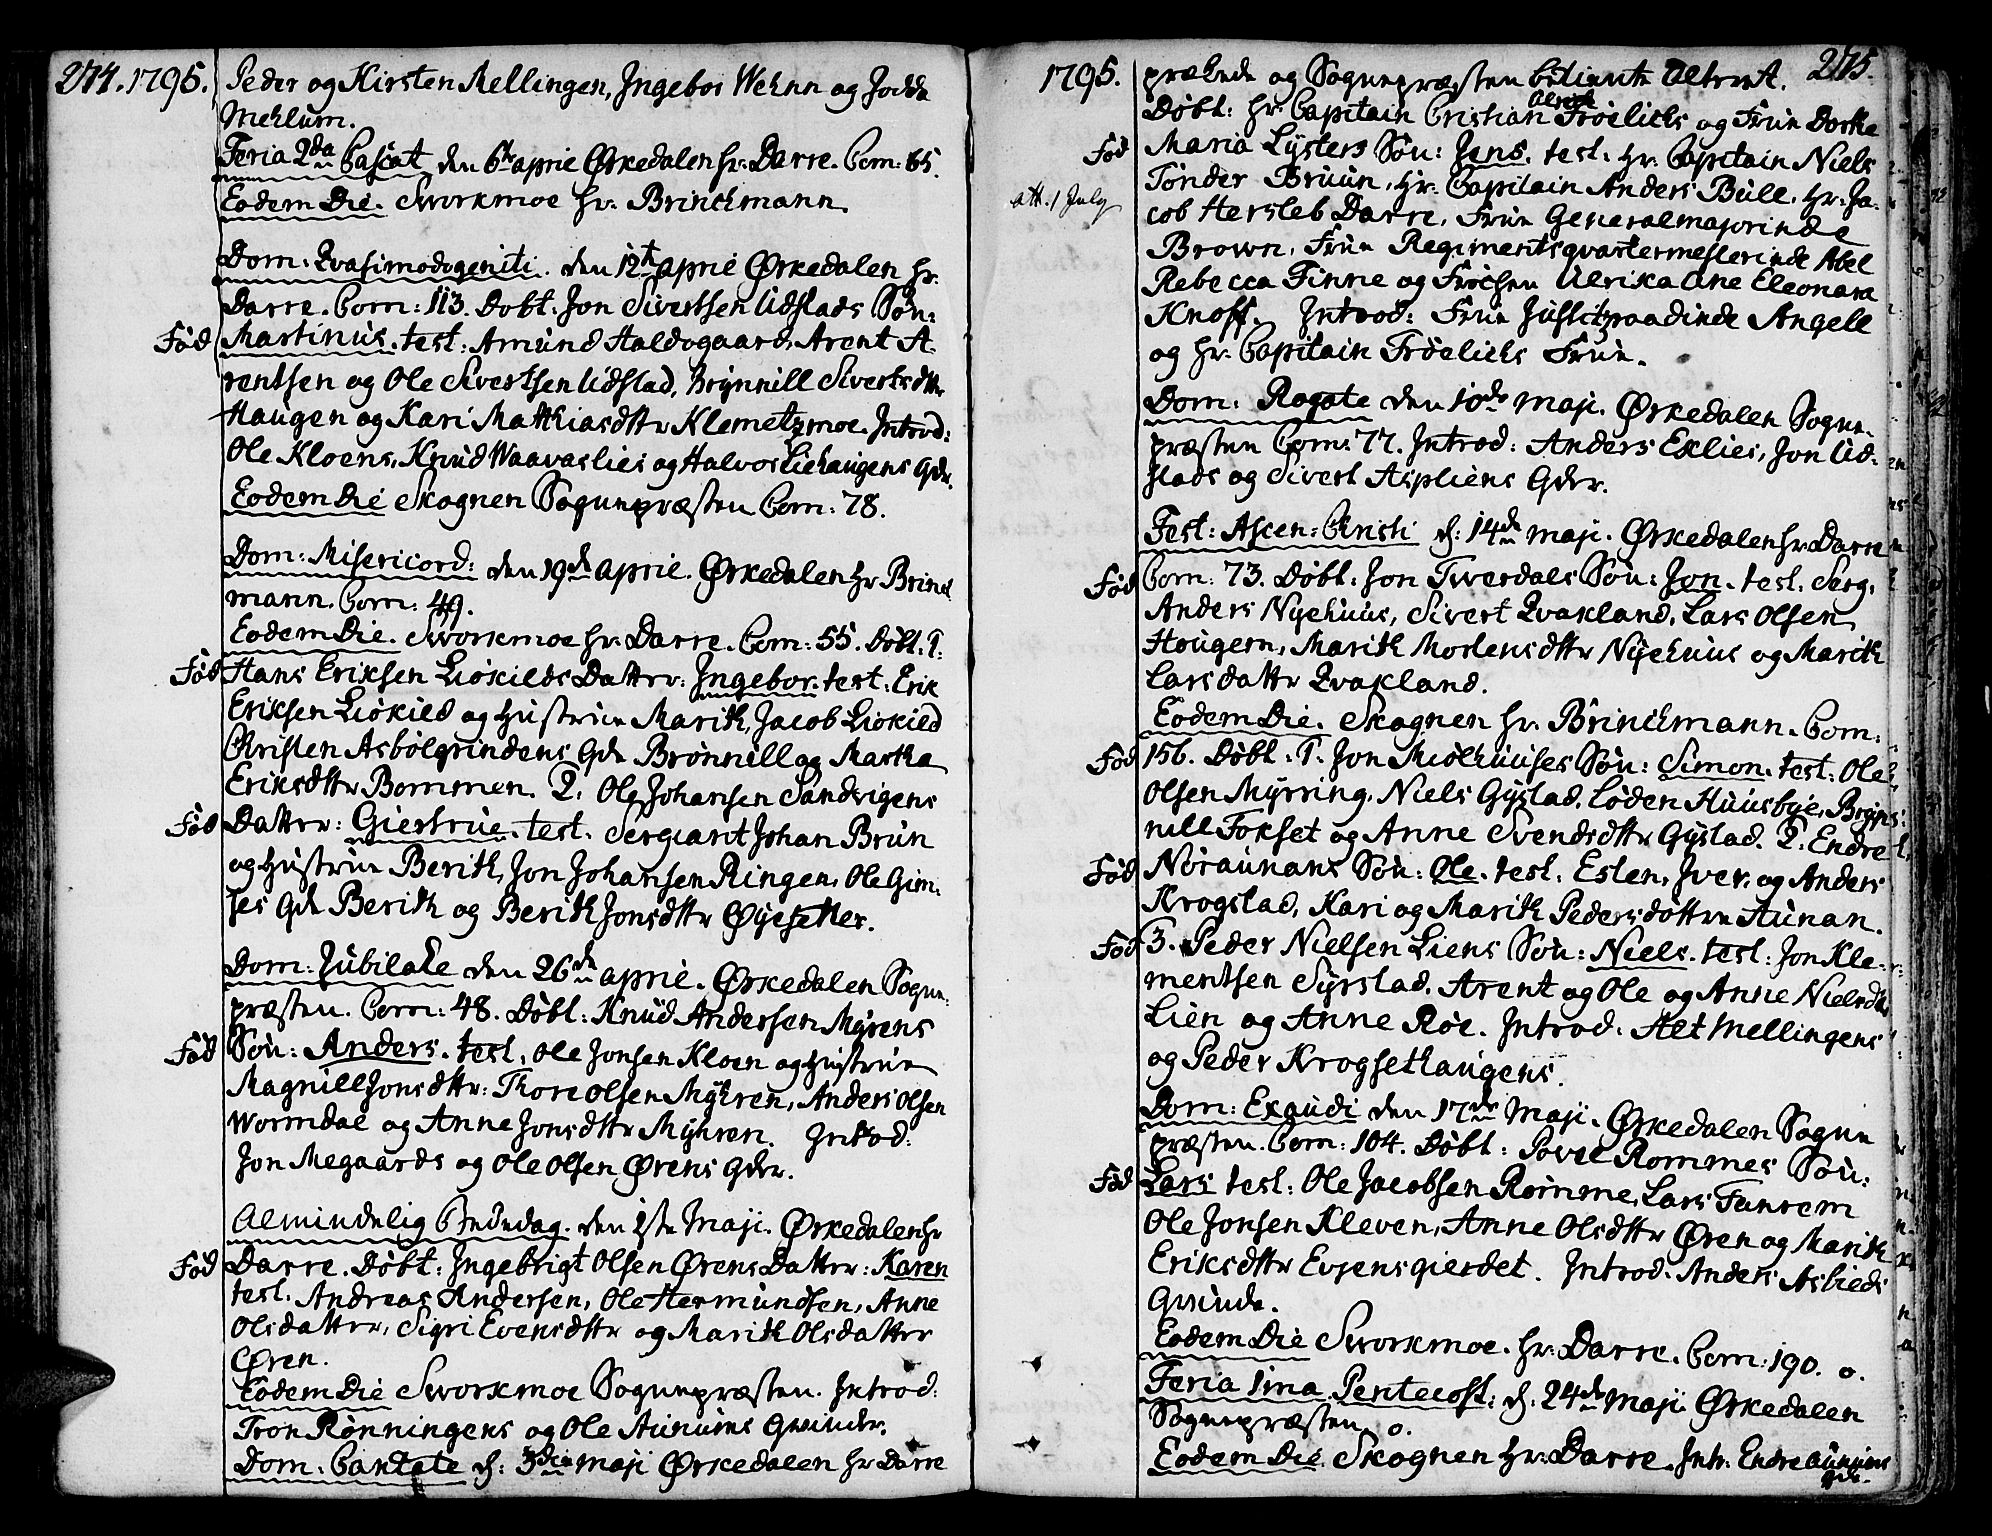 274. 1795.
Peder og Kirsten Mellingen, Ingebor Wehnn og Jodde
Mehlum.
Feria 2da Pascat den 6te aprie Ørkedalen hr. Darre. Com: 65.
Eodem Die. Sworkmoe hr. Brinchmann.
Dom: Qvasimodogeniti. den 12te aprie Ørkedalen hr.
Darre. Com: 113. Døbt: Jon Sivertsen Udstads Søn:
Fød Martinus. test: Amund Haldogaard, Arent A-
rentsen og Ole Sivertsen Udstad, Brynnill Sivertsdttr
Haugen og Kari Matthiasdttr Klemetzmoe. Introd:
Ole Kloens, Knud Waavaslies og Halvor Liehaugens Qdr.
Eodem Die Skognen Sognepræsten Com: 78.
Dom: Misericord: den 19de aprie. Ørkedalen hr Brinch
mann. Com: 49.
Eodem Die. Sworkmoe hr. Darre. Com: 55. Døbt. 1.
Fød Hans Eriksen Liøkilds Datter: Ingebor. test: Erik
Eriksen Liøkild og Hustrue Marith, Jacob Liøkild
Christen Asbølgrindens Qde Brønnill og Martha
Eriksdttr Bommen. 2. Ole Johansen Sandvigens
Fød Datter: Giertrue. test. Sergiant Johan Brun
og Hustrue Berith, Jon Johansen Ringen, Ole Gim-
ses Qde Berith og Berith Jonsdttr Øyesetter.
Dom: Jubilate den 26de aprie. Ørkedalen Sogne-
præsten. Com: 48. Døbt: Knud Andersen Myrens
Fød Søn: Anders. test. Ole Jonsen Kloen og Hustrue
Magnill Jonsdttr: Thore Olsen Myhren, Anders Olsen
Wormdal og Anne Jonsdttr Myhren. Introd:
Jon Megaards og Ole Olsen Ørens Qdr.
Almindelig Bededag. den 1ste Maji. Ørkedalen hr
Fød Darre. Døbt: Ingebrigt Olsen Ørens Datter: Karen
test. Andreas Andersen, Ole Hermundsen, Anne
Olsdatter, Sigri Evensdttr og Marith Olsdatter
Øren.
Eodem Die Sworkmoe Sognepræsten. Introd:
Tron Rønningens og Ole Aunums Qvinder.
Dom: Cantate d: 3die maji Ørkedalen hr Darre
1795. 275.
prælude og Sognepræsten betiente Alteret.
Døbt: hr. Capitain Cristian Ulrich Frøelichs og Frue Dorthe
Fød Maria Lysters Søn: Jens. test: hr. Capitain Niels
att. 1 July Tønder Bruun, hr. Capitain Anders Bull, hr. Ja-
cob Hersleb Darre, Frue Generalmajorinde
Brown, Frue Regimentsqvartermesterinde Abel
Rebecca Finne og Frøchen Ulrika Ane Eleonara
Knoff. Introd: Frue Justitzraadinde Angell
og hr. Capitain Frøelichs Frue.
Dom: Rogate den 10de maji. Ørkedalen Sogne-
præsten Com: 77. Introd: Anders Exlies, Jon Ud-
stads og Sivert Aspliens Qder.
Fest: Ascen: Cristi d: 14de maji. Ørkedalen hr. Darre
Fød Com: 73. Døbt: Jon Twerdals Søn: Jon. test. Serg.
Anders Nyehuus, Sivert Qvakland, Lars Olsen
Hougern, Marith Mortensdttr Nyehuus og Marith
Larsdattr Qvakland.
Eodem Die. Skognen hr. Brinchmann. Com:
Fød 156. Døbt. 1. Jon Miølhuuses Søn: Simon. test: Ole
Olsen Myrring, Niels Gystad, Løden Huusbye, Bryn-
nill Fokset og Anne Svendsdttr Gystad. 2. Endre
Fød Noraunans Søn: Ole. test. Esten, Iver, og Anders
Krogstad, Kari og Marith Pedersdøttre Aunan.
Fød 3. Peder Nielsen Liens Søn: Niels. test: Jon Kle-
mentsen Syrstad, Arent og Ole og Anne Nielsdttr
Lien og Anne Røe. Introd: Alt Mellingens
og Peder Krogsethaugens.
Dom: Exaudi den 17de maji. Ørkedalen Sogne
præsten. Com: 104. Døbt: Povel Rommes Søn:
Fød Lars test: Ole Jacobsen Romme, Lars Fanrem
Ole Jonsen Kleven, Anne Olsdttr Øren og Marith
Eriksdttr Evjensgierdet. Introd: Anders Aslieds
Qvinde.
Eodem Die Sworkmoe. hr: Darre. Com: 190. o.
Feria 1ma Pentecost: d. 24de maji Ørkedalen
Sognepræsten o.
Eodem Die Skognen hr: Darre. Intr: Endre Aunums
Qde.